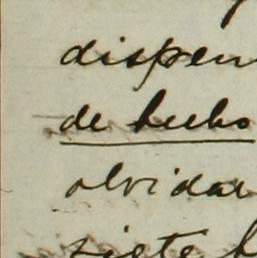 dispen
de hecho
olvidar
siete